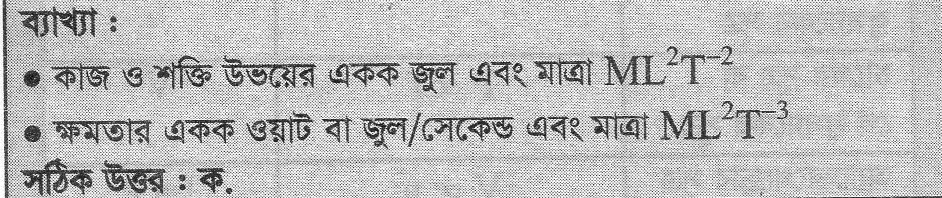 ব্যাখ্যা :
● কাজ ও শক্তি উভয়ের একক জুল এবং মাত্রা ML²T⁻²
● ক্ষমতার একক ওয়াট বা জুল/সেকেন্ড এবং মাত্রা ML²T⁻³
সঠিক উত্তর : ক.